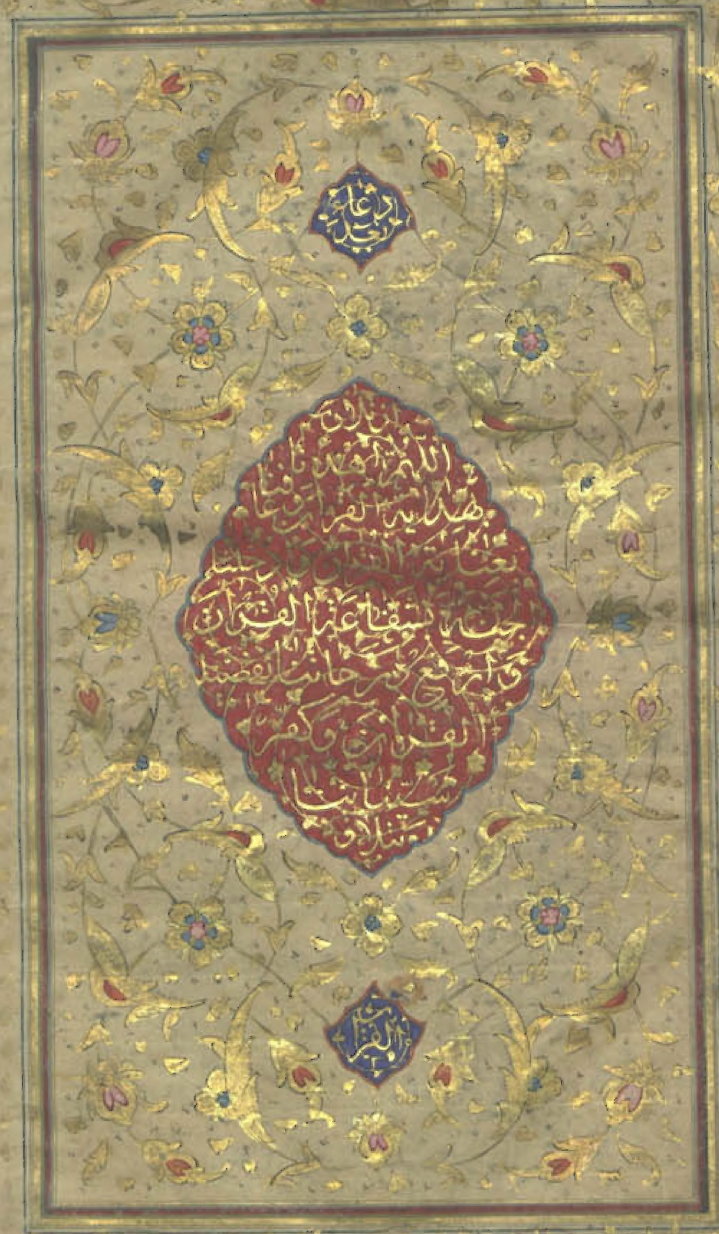 دعاء
بعد
من تلاوة
اللهم اهدنا
بهداية القرآن وعافنا
بعناية القرآن وادخلنا
الجنة بشفاعة القرآن
وارفع درجاتنا بفضيلة
القرآن وكفر
سيئاتنا
بتلاوة
القرآن